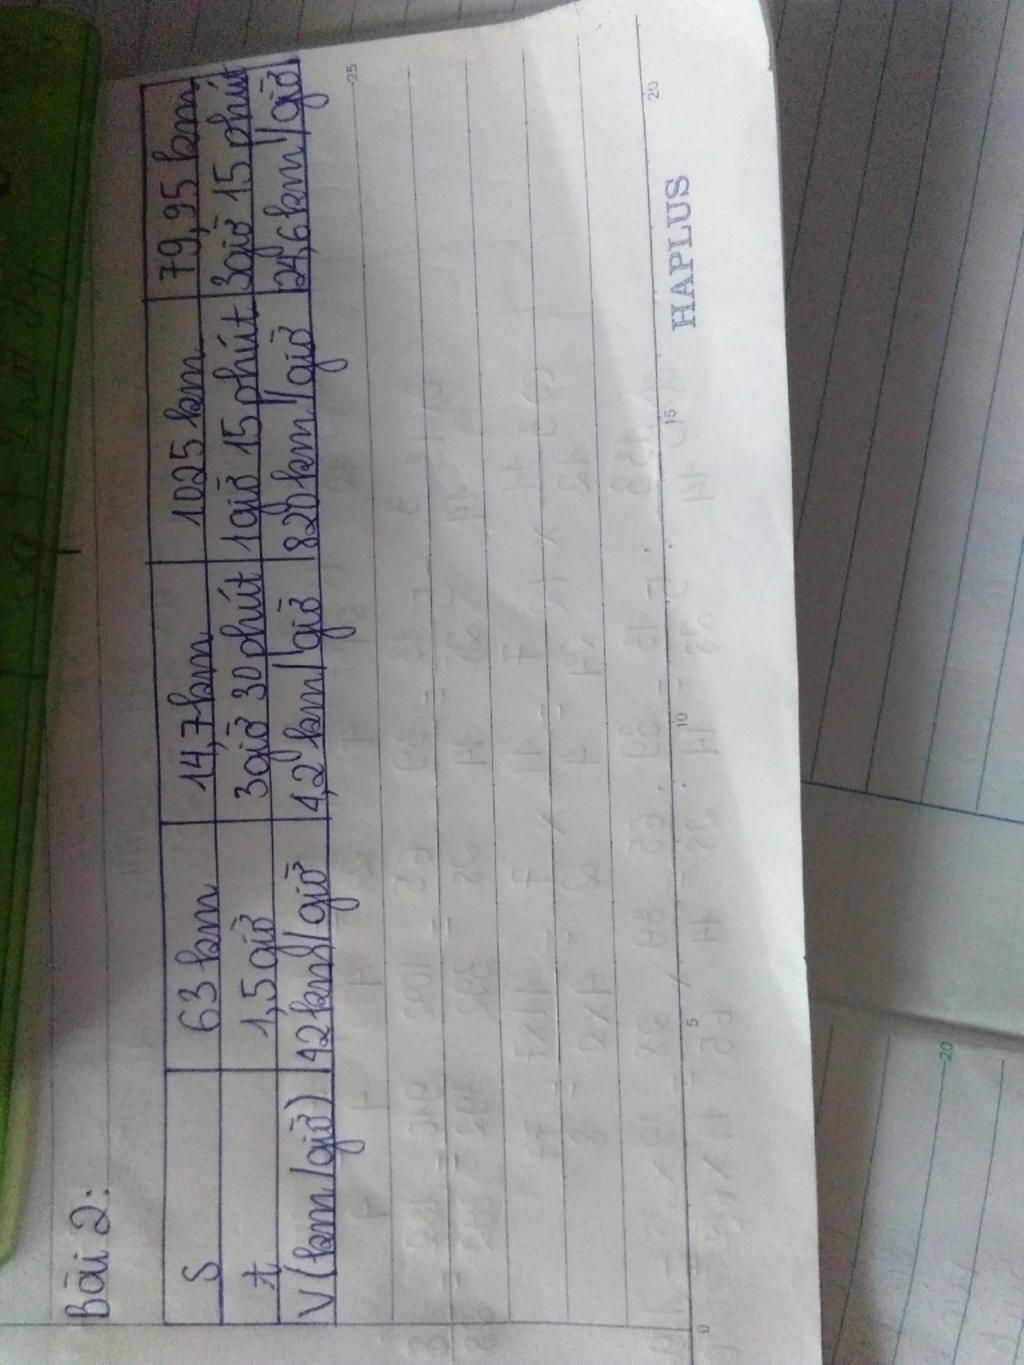 Bài 2:
S 63 km 14,7 km 1025 km 79,95 km
t 1,5 giờ 3 giờ 30 phút 1 giờ 15 phút 3 giờ 15 phút
V (km/giờ) 42 km/giờ 4,2 km/giờ 820 km/giờ 24,6 km/giờ
0 5 10 15 20
25
HAPLUS
20